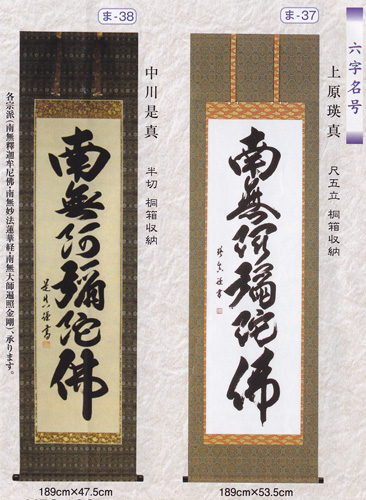 六字名号
ま-37
上原瑛真
尺五立 桐箱収納
南無阿彌陀佛
189cm×53.5cm
ま-38
中川是真
半切 桐箱収納
南無阿彌陀佛
是真謹書
189cm×47.5cm
各宗派(南無釋迦牟尼佛・南無妙法蓮華経・南無大師遍照金剛)、承ります。